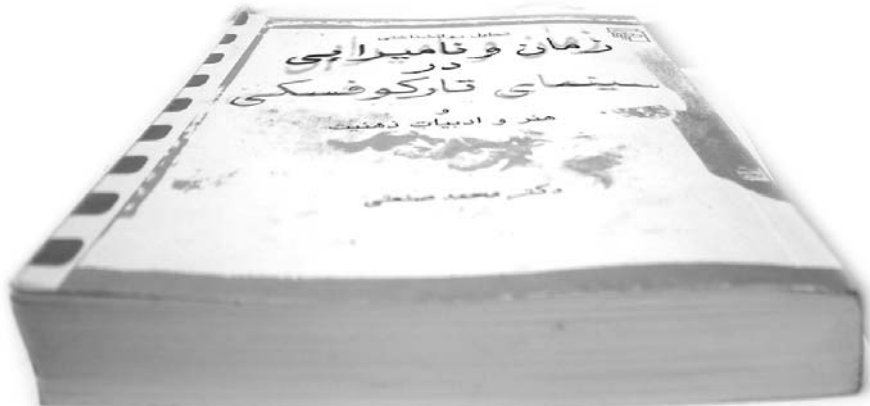 تحلیل روانشناختی
زمان و نامیرایی
در
سینمای تارکوفسکی
و
هنر و ادبیات ذهنیت
دکتر محمد صنعتی